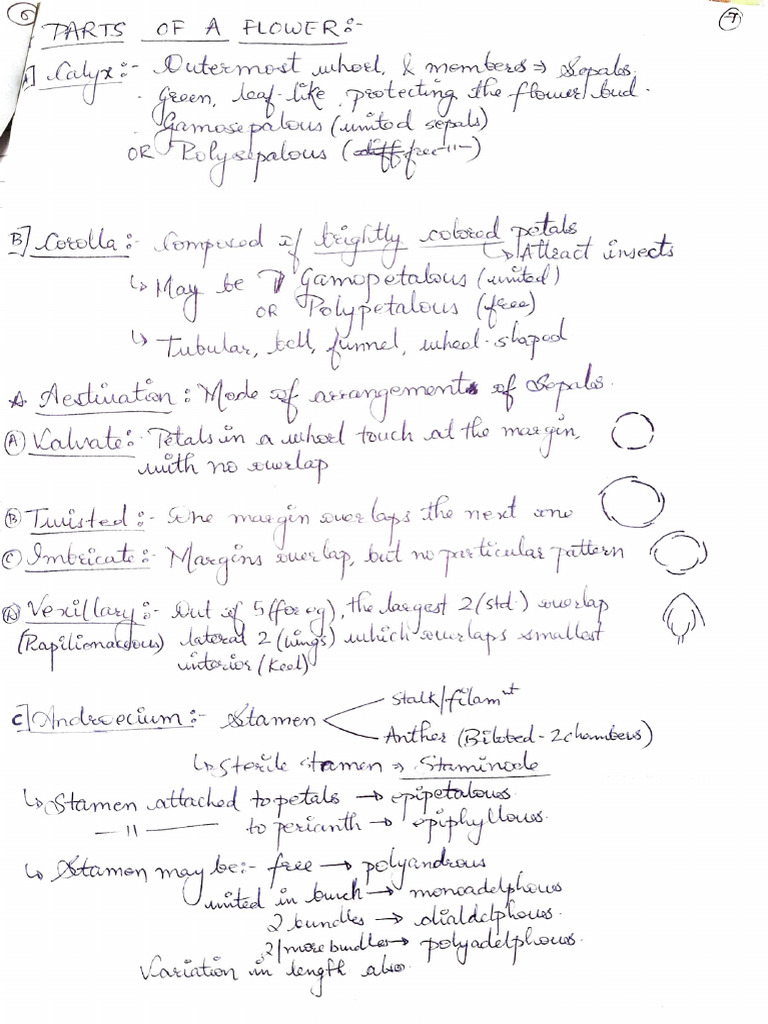 6
7
PARTS OF A FLOWER:-
A] Calyx:- Outermost wheel, & members => Sepals.
. Green, leaf-like, protecting the flower/bud.
. Gamosepalous (united sepals)
OR Polysepalous (free -11-)
B] Corolla:- Composed of brightly colored petals
↳ Attract insects
↳ May be Gamopetalous (united)
OR Polypetalous (free)
↳ Tubular, bell, funnel, wheel-shaped
Aestivation: Mode of arrangements of Sepals.
(A) Valvate:- Petals in a wheel touch at the margin,
with no overlap
(B) Twisted:- One margin overlaps the next one
(C) Imbricate:- Margins overlap, but no particular pattern
(D) Vexillary:- Out of 5 (for eg), the largest 2 (std.) overlap
(Papilionaceous) lateral 2 (wings) which overlaps smallest
interior (keel)
C] Androecium:- Stamen
Stalk/filamnt
Anther (Bilobed - 2 chambers)
↳ Sterile stamen → Staminode
↳ Stamen attached to petals → epipetalous.
— 11 — to perianth → epiphyllous.
↳ Stamen may be:- free → polyandrous
united in bunch → monoadelphous
2 bundles → dialdelphous.
2/more bundles → polyadelphous.
Variation in length also.